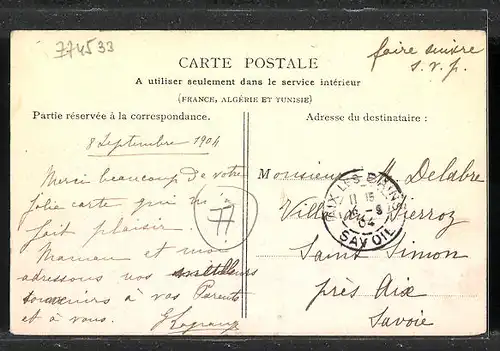 774533
faire suivre
s.v.p.
CARTE POSTALE
A utiliser seulement dans le service intérieur
(FRANCE, ALGÉRIE ET TUNISIE)
Partie réservée à la correspondance.
Adresse du destinataire :
8 Septembre 1904
Merci beaucoup de votre
jolie carte qui m'a
fait plaisir.
Maman et moi
adressons nos meilleurs
souvenirs à vos Parents
et à vous.
Monsieur M. Delabre
Villa Pierroz
Saint Simon
près Aix
Savoie
AIX-LES-BAINS
SAVOIE